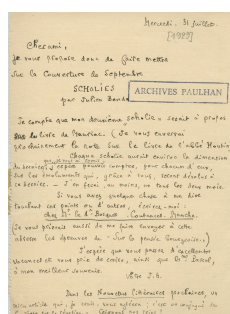 Mercredi. 31 Juillet.
[1929]
Cher ami,
Je vous propose donc de faire mettre
sur la couverture de Septembre
SCHOLIES
par Julien Benda
ARCHIVES PAULHAN
Je compte que mon deuxième scholie sera à propos
du livre de Mauriac. (Je vous enverrai
prochainement la note sur le livre de l'abbé
Chaque scholie aurait environ la dimension
du dernier, et je pouvoir compter, pour chacun d'eux
sur les émoluments qui, grâce à vous, seront
ce dernier. J'en ferai, au moins, un tous les deux mois.
Si vous avez quelque chose à me dire
touchant ces points ou d'autres, écrivez-moi :
chez Mr le Dr Coutances. Manche.
Je vous prierais aussi de me faire envoyer à cette
adresse les épreuves de
J'espère que vous passez d'excellentes
vacances et vous prie de croire, ainsi que
à mon meilleur souvenir.
Dans les Nouvelles littéraires prochaines, va